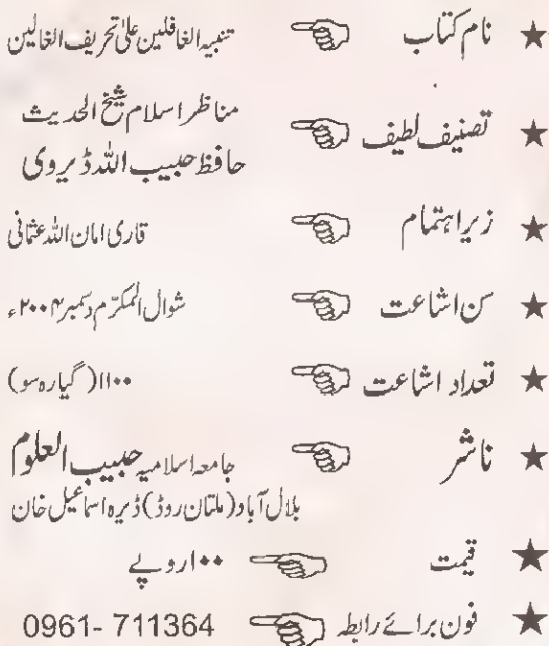 ★ نام کتاب ☜ تنبیہ الغافلین علیٰ تحریف الغالین
★ تصنیف لطیف ☜ مناظر اسلام شیخ الحدیث
حافظ حبیب اللہ ڈیروی
★ زیراہتمام ☜ قاری امان اللہ عثمانی
★ سن اشاعت ☜ شوال المکرّم دسمبر ۲۰۰۴ء
★ تعداد اشاعت ☜ ۱۱۰۰ (گیارہ سو)
★ ناشر ☜ جامعہ اسلامیہ حبیب العلوم
بلال آباد (ملتان روڈ) ڈیرہ اسماعیل خان
★ قیمت ☜ ۱۰۰ روپے
★ فون برائے رابطہ ☜ 0961- 711364